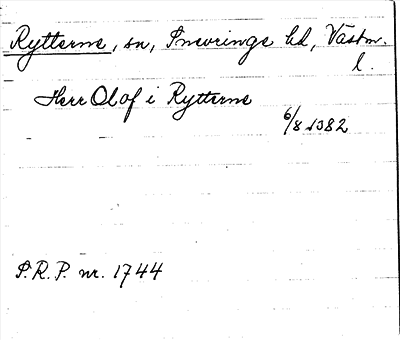 Rytterne, sn, Snevringe hd, Västm.
l.
Herr Olof i Rytterne
6/8 1382
S.R.P. nr. 1744